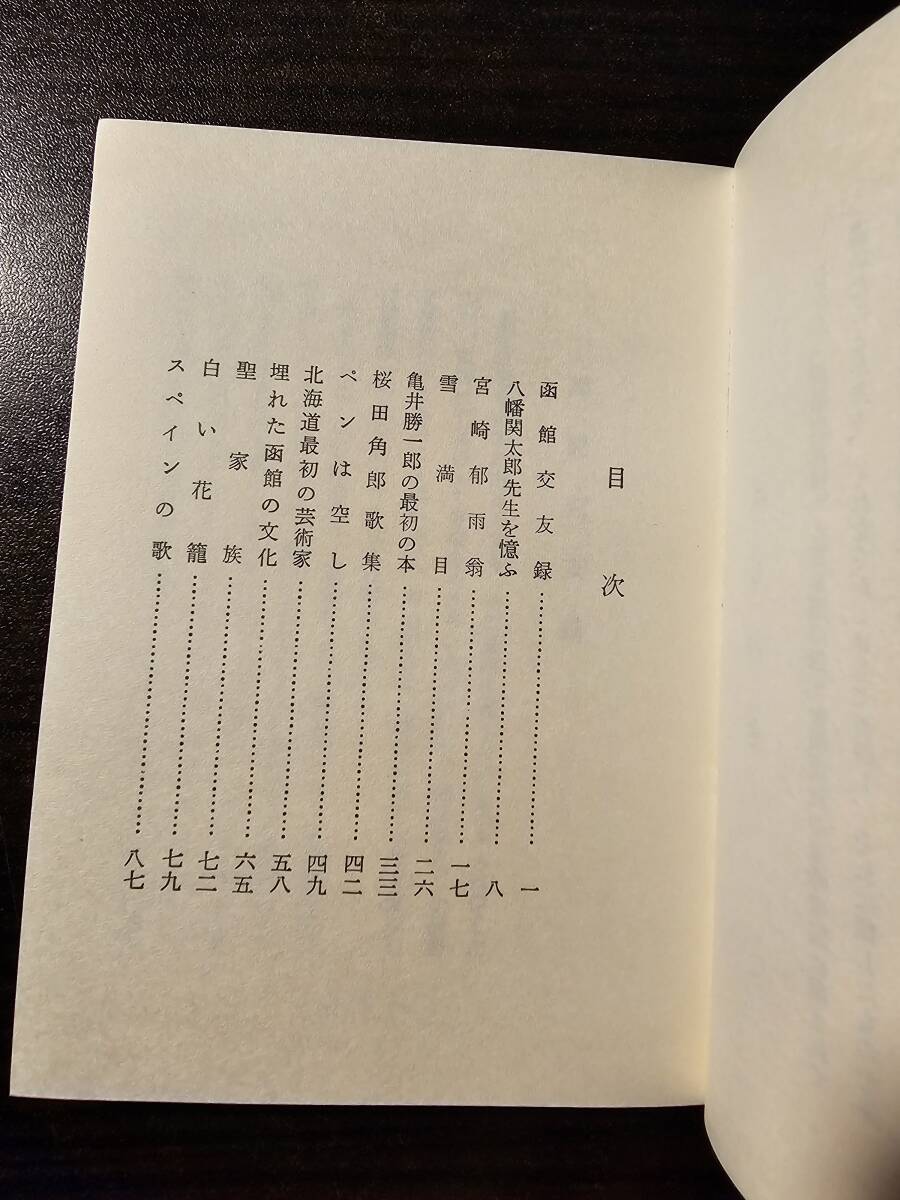 目次
函館交友録……………………一
八幡関太郎先生を憶ふ……………………八
宮崎郁雨翁……………………一七
雪満目……………………二六
亀井勝一郎の最初の本……………………三三
桜田角郎歌集……………………四二
ペンは空し……………………四九
北海道最初の芸術家……………………五八
埋れた函館の文化……………………六五
聖家族……………………七二
白い花籠……………………七九
スペインの歌……………………八七